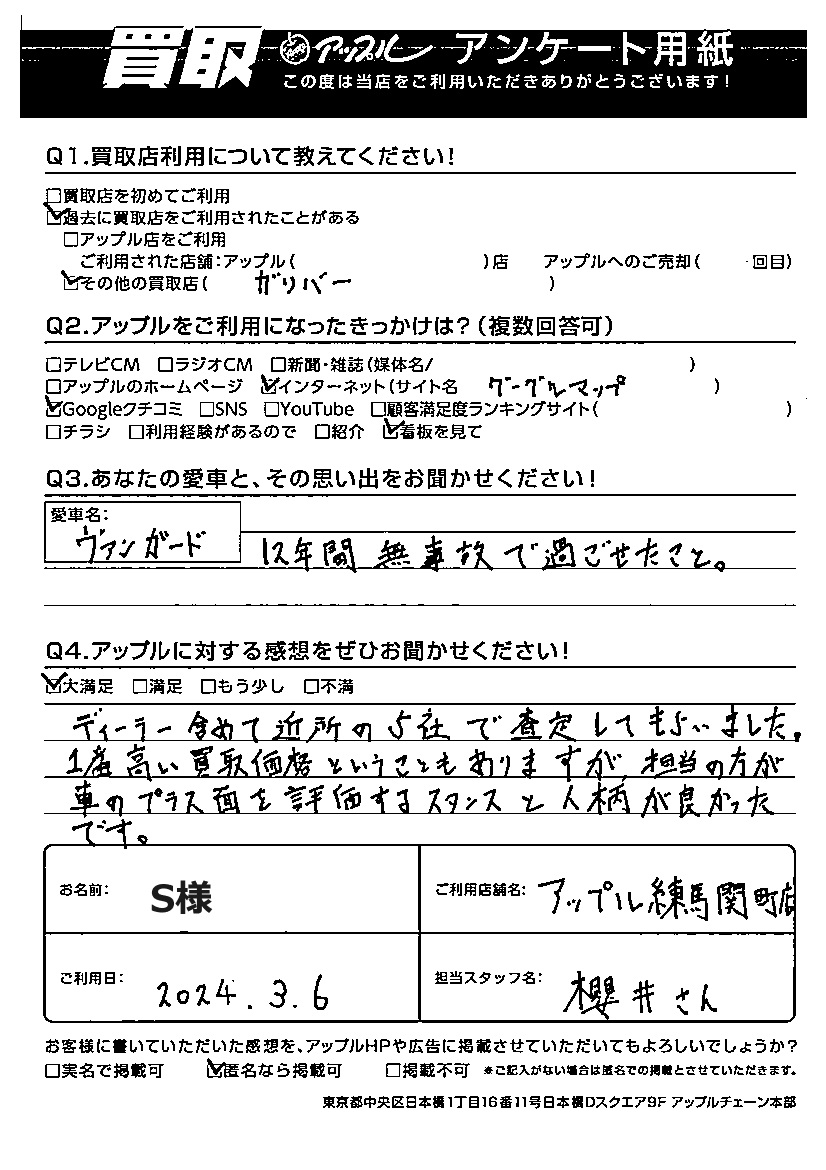 買取 アップル アンケート用紙
この度は当店をご利用いただきありがとうございます!
Q1.買取店利用について教えてください!
□買取店を初めてご利用
☑過去に買取店をご利用されたことがある
□アップル店をご利用
ご利用された店舗:アップル( )店 アップルへのご売却( 回目)
☑その他の買取店( ガリバー )
Q2.アップルをご利用になったきっかけは?(複数回答可)
□テレビCM □ラジオCM □新聞・雑誌(媒体名/ )
□アップルのホームページ ☑インターネット(サイト名 グーグルマップ )
☑Googleクチコミ □SNS □YouTube □顧客満足度ランキングサイト( )
□チラシ □利用経験があるので □紹介 ☑看板を見て
Q3.あなたの愛車と、その思い出をお聞かせください!
愛車名:
ヴァンガード 12年間 無事故で過ごせたこと。
Q4.アップルに対する感想をぜひお聞かせください!
☑大満足 □満足 □もう少し □不満
ディーラー含めて近所の5社で査定してもらいました。
1番高い買取価格ということもありますが、担当の方が
車のプラス面を評価するスタンスと人柄が良かった
です。
お名前: S様 ご利用店舗名: アップル練馬関町店
ご利用日: 2024.3.6 担当スタッフ名: 櫻井さん
お客様に書いていただいた感想を、アップルHPや広告に掲載させていただいてもよろしいでしょうか?
□実名で掲載可 ☑匿名なら掲載可 □掲載不可 ※ご記入がない場合は匿名での掲載とさせていただきます。
東京都中央区日本橋1丁目16番11号日本橋Dスクエア9F アップルチェーン本部